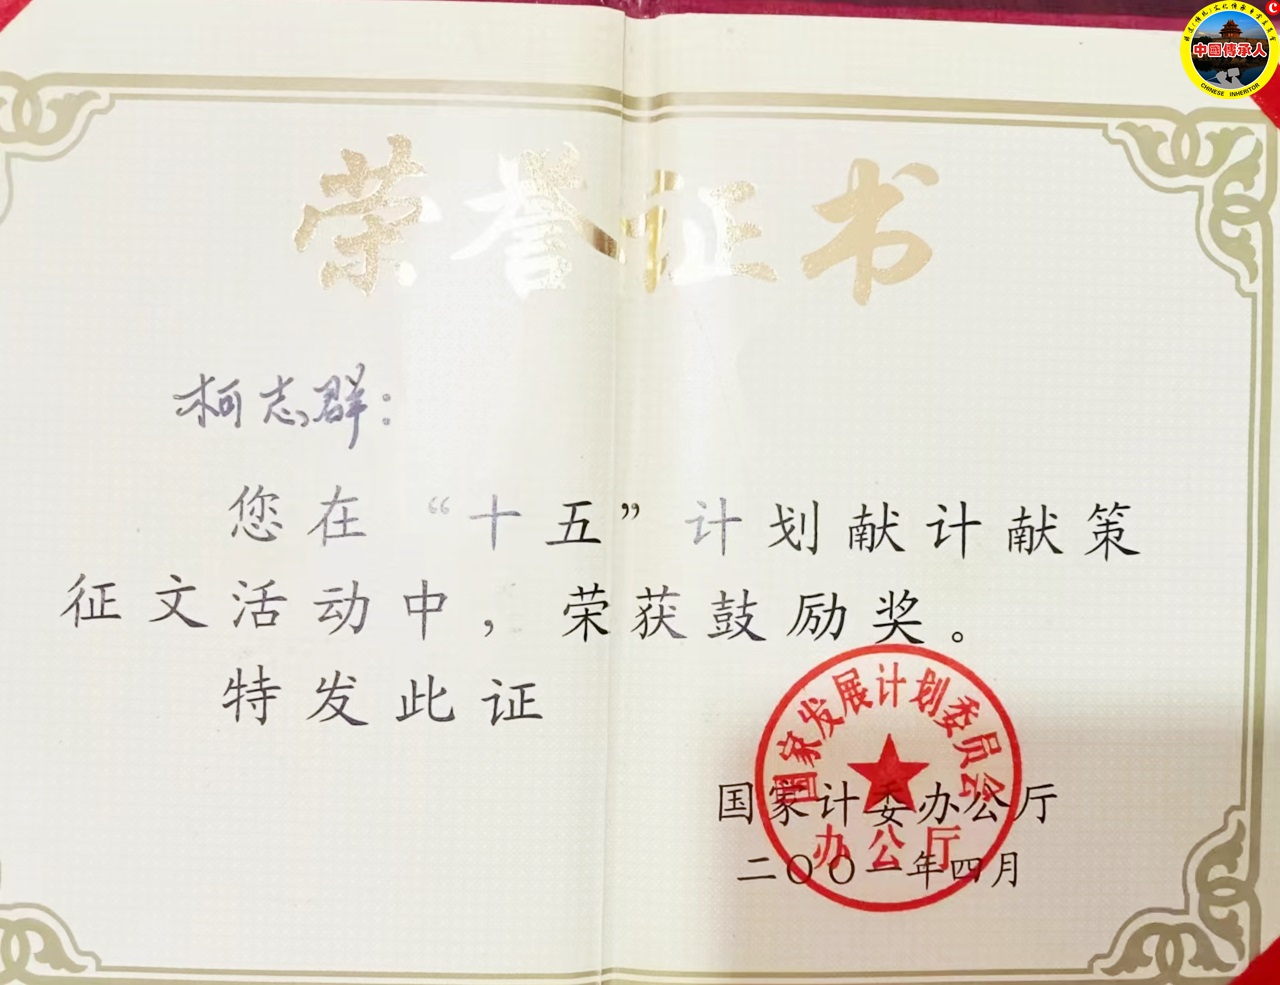 荣誉证书
柯志群：
您在“十五”计划献计献策
征文活动中，荣获鼓励奖。
特发此证
国家计委办公厅
二〇〇一年四月
国家发展计划委员会
办公厅
中國傳承人
CHINESE INHERITOR
C